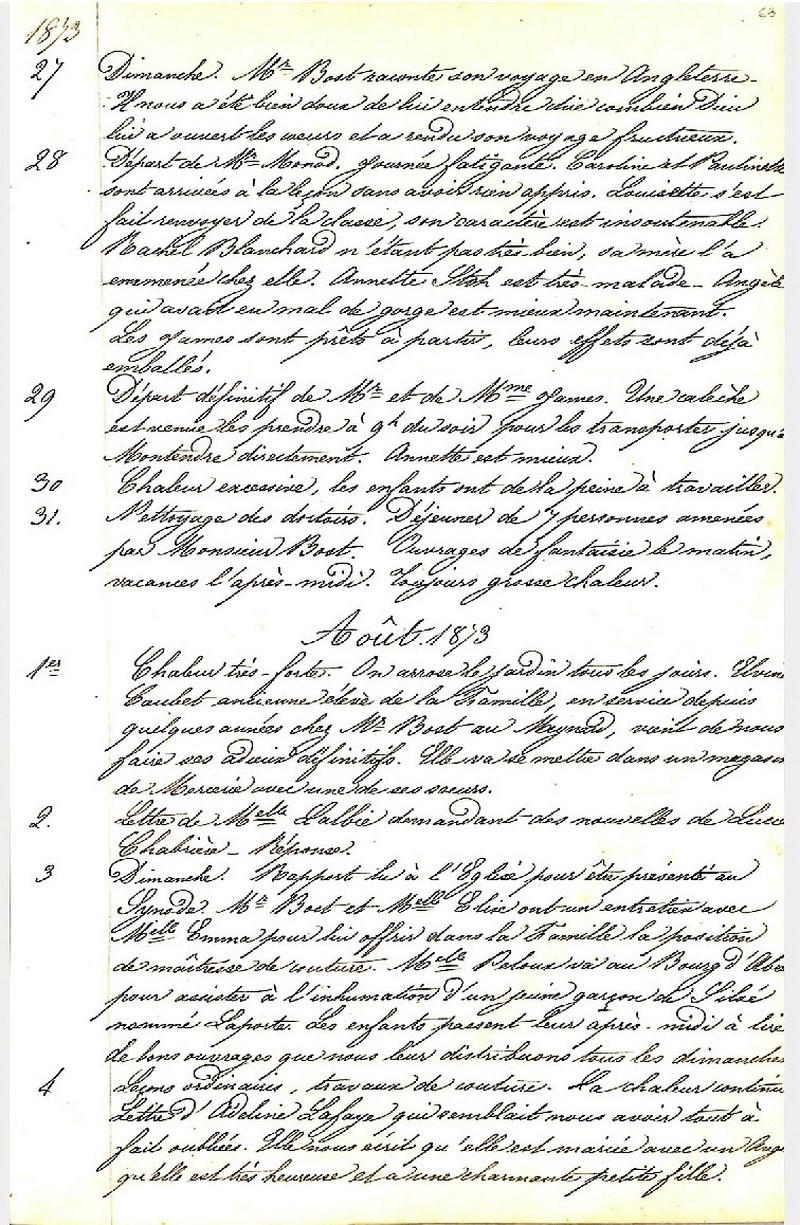 63
1873
27 Dimanche. Mr Bost raconte son voyage en Angleterre -
Il nous a été bien doux de lui entendre dire combien Dieu
lui a ouvert les cœurs et a rendu son voyage fructueux.
28 Départ de Mr Monod. Journée fatigante. Caroline et Paulinette
sont arrivées à la leçon sans avoir rien appris. Louisette s'est
fait renvoyer de la classe, son caractère est insoutenable.
Rachel Blanchard n'étant pas très bien, sa mère l'a
emmenée chez elle. Annette est très-malade - Angèle
qui avait eu mal de gorge est mieux maintenant.
Les James sont prêts à partir, leurs effets sont déjà
emballés.
29 Départ définitif de Mr et de Mme James. Une calèche
est venue les prendre à 9h du soir pour les transporter jusqu'à
Montendre directement. Annette est mieux.
30 Chaleur excessive, les enfants ont de la peine à travailler.
31. Nettoyage des dortoirs. Déjeuner de 7 personnes amenées
par Monsieur Bost. Ouvrages de fantaisie le matin,
vacances l'après-midi. Toujours grosse chaleur.
Août. 1873
1er Chaleur très-forte. On arrose le jardin tous les jours. Elvin
Caubet ancienne élève de la Famille, en service depuis
quelques années chez Mr Bost au Meynard, vient de nous
faire ses adieux définitifs. Elle va se mettre dans un magasin
de Mercerie avec une de ses sœurs.
2. Lettre de Melle Lalbie demandant des nouvelles de
Chabrière - Réponse.
3 Dimanche. Rapport lu à l'Eglise pour être présenté au
Synode. Mr Bost et Melle Elise ont un entretien avec
Melle Emma pour lui offrir dans la Famille la position
de maîtresse de couture. Melle Peloux va au Bourg d'Abe
pour assister à l'inhumation d'un jeune garçon de Siloé
nommé Laporte. Les enfants passent leur après-midi à lire
de bons ouvrages que nous leur distribuons tous les dimanches
4 Leçons ordinaires, travaux de couture. La chaleur continue
Lettre d'Adeline Lafaye qui semblait nous avoir tout à
fait oubliées. Elle nous écrit qu'elle est mariée avec un Ang
qu'elle est très heureuse et a une charmante petite fille.